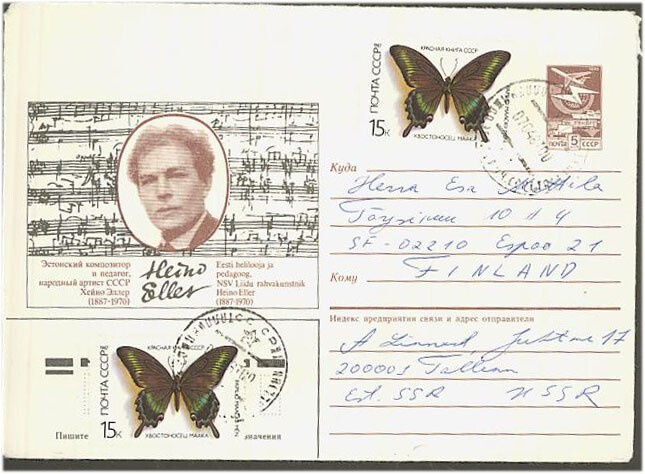 КРАСНАЯ КНИГА СССР
ПОЧТА СССР
15к
ХВОСТОНОСЕЦ МААКА
ПОЧТА 5к СССР
Эстонский композитор
и педагог,
народный артист СССР
Хейно Эллер
(1887-1970)
Heino
Eller
Eesti helilooja ja
pedagoog,
NSV Liidu rahvakunstnik
Heino Eller
(1887-1970)
Куда
Herra Esa
10 A 4
SF-02210 Espoo 21
Кому
FINLAND
Индекс предприятия связи и адрес отправителя
A
17
200001 Tallinn
Est. SSR USSR
КРАСНАЯ КНИГА
ПОЧТА СССР
15к
ХВОСТОНОСЕЦ МААКА
Пишите
значения